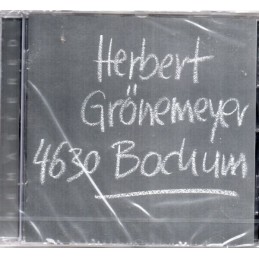 Herbert
Grönemeyer
4630 Bochum
REMASTERED